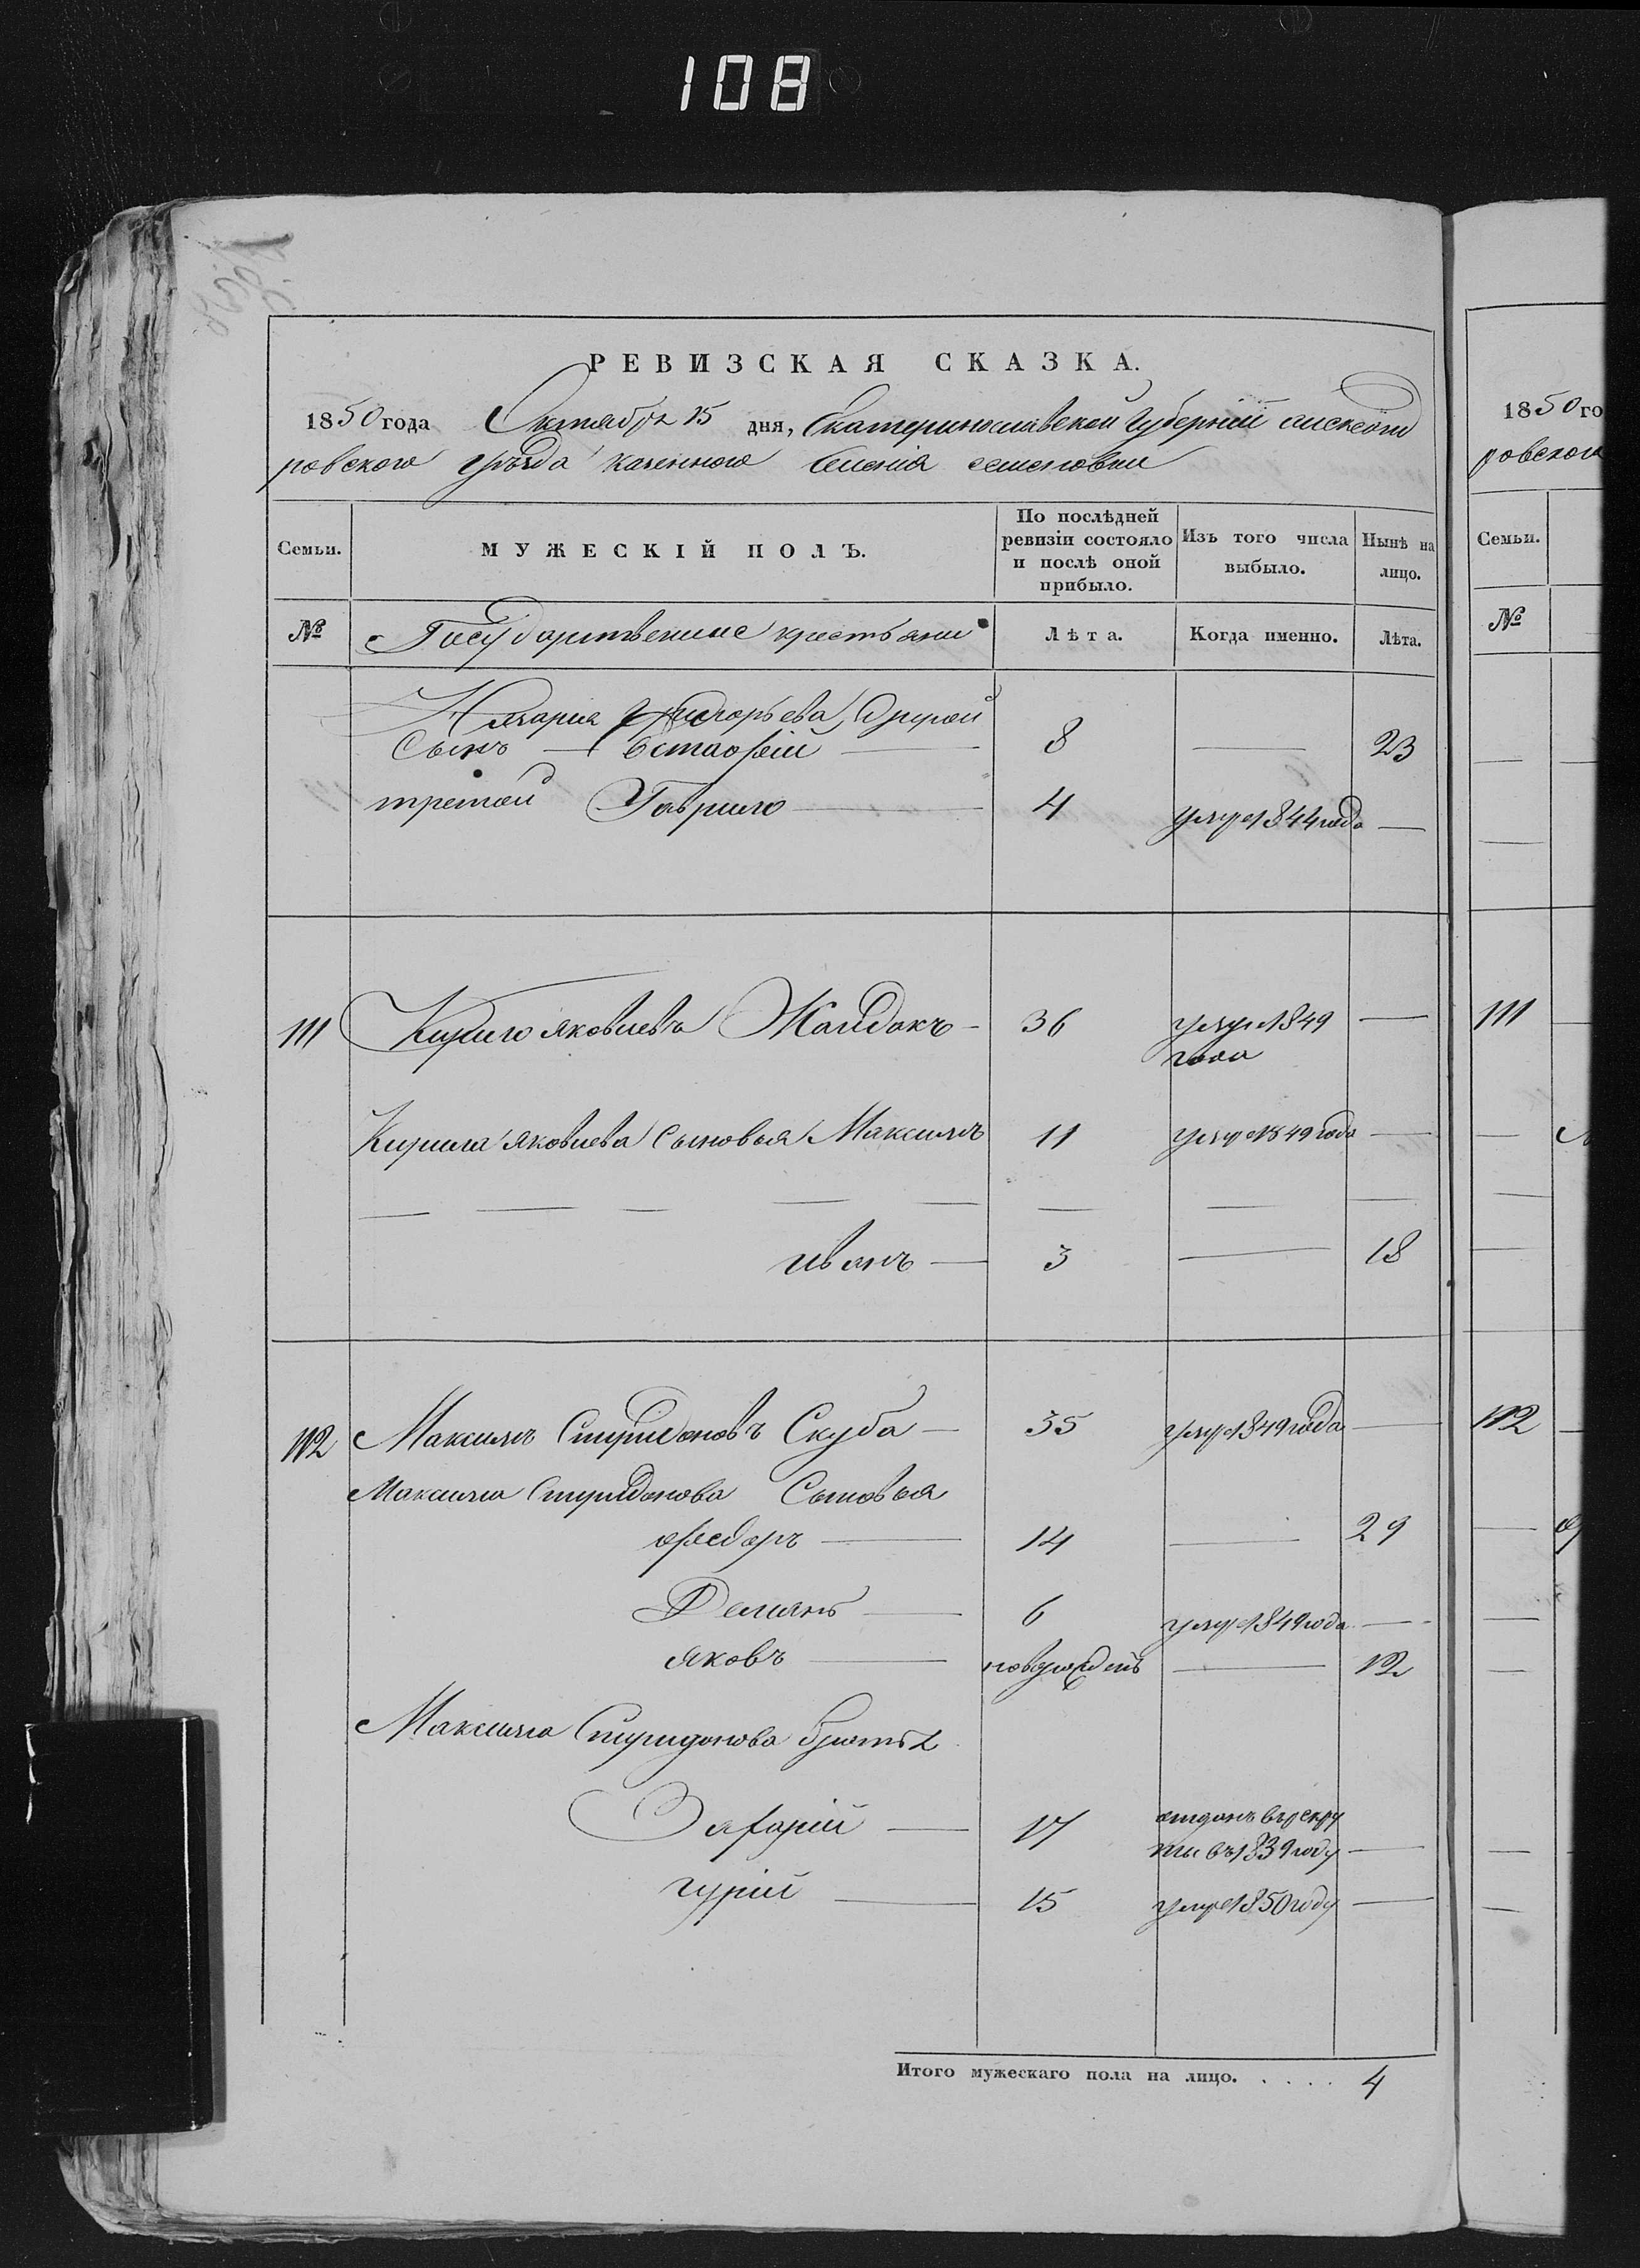 108
РЕВИЗСКАЯ СКАЗКА.
1850 года Октября 15 дня, Екатеринославской Губерніи Александ
ровского уѣзда казенного селенія семеновки
Семьи.
МУЖЕСКІЙ ПОЛЪ.
По послѣдней ревизіи состояло и послѣ оной прибыло.
Изъ того числа выбыло.
Нынѣ на лицо.
№ Государственные крестьяни Лѣта. Когда именно. Лѣта.
Григорьева другой
сынъ — Естафій — 8 — 23
третой Гаврило — 4 умре 1844 года —
111 Кирило яковлевъ Жайдакъ — 36 умре 1849 —
года
Кирила яковлева сыновья Максимъ 11 умре 1849 года —
иванъ — 3 — 18
112 Максимъ Спиридоновъ Скуба — 35 умре 1849 года —
Максима Спиридонова Сыновья
федоръ — 14 — 29
Демянъ — 6 умре 1849 года —
яковъ — новорожденъ — 12
Максима Спиридонова братья
Захарій — 17 отданъ въ рекру
ты въ 1839 году —
гурій — 15 умре 1850 году —
Итого мужескаго пола на лицо. . . . . 4
1850 го
ровского
Семьи.
№
111
112